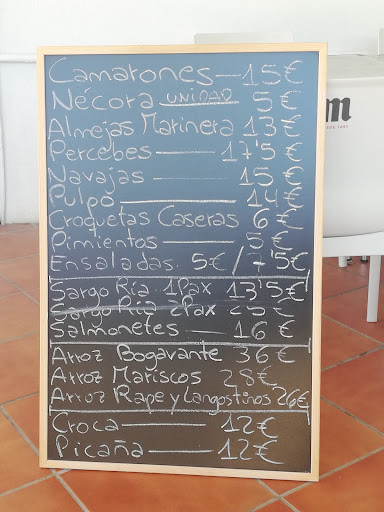 Camarones — 15€
Nécora unidad 5€
Almejas Marinera 13€
Percebes — 17'5€
Navajas — 15€
Pulpo — 14€
Croquetas Caseras 6€
Pimientos — 5€
Ensaladas. 5€/-'5€
Sargo Ría 1Pax 13'5€
Sargo Ría 2Pax 25€
Salmonetes — 16€
Arroz Bogavante 36€
Arroz Mariscos 28€
Arroz Rape y Langostinos 26€
Croca — 12€
Picaña — 12€
m